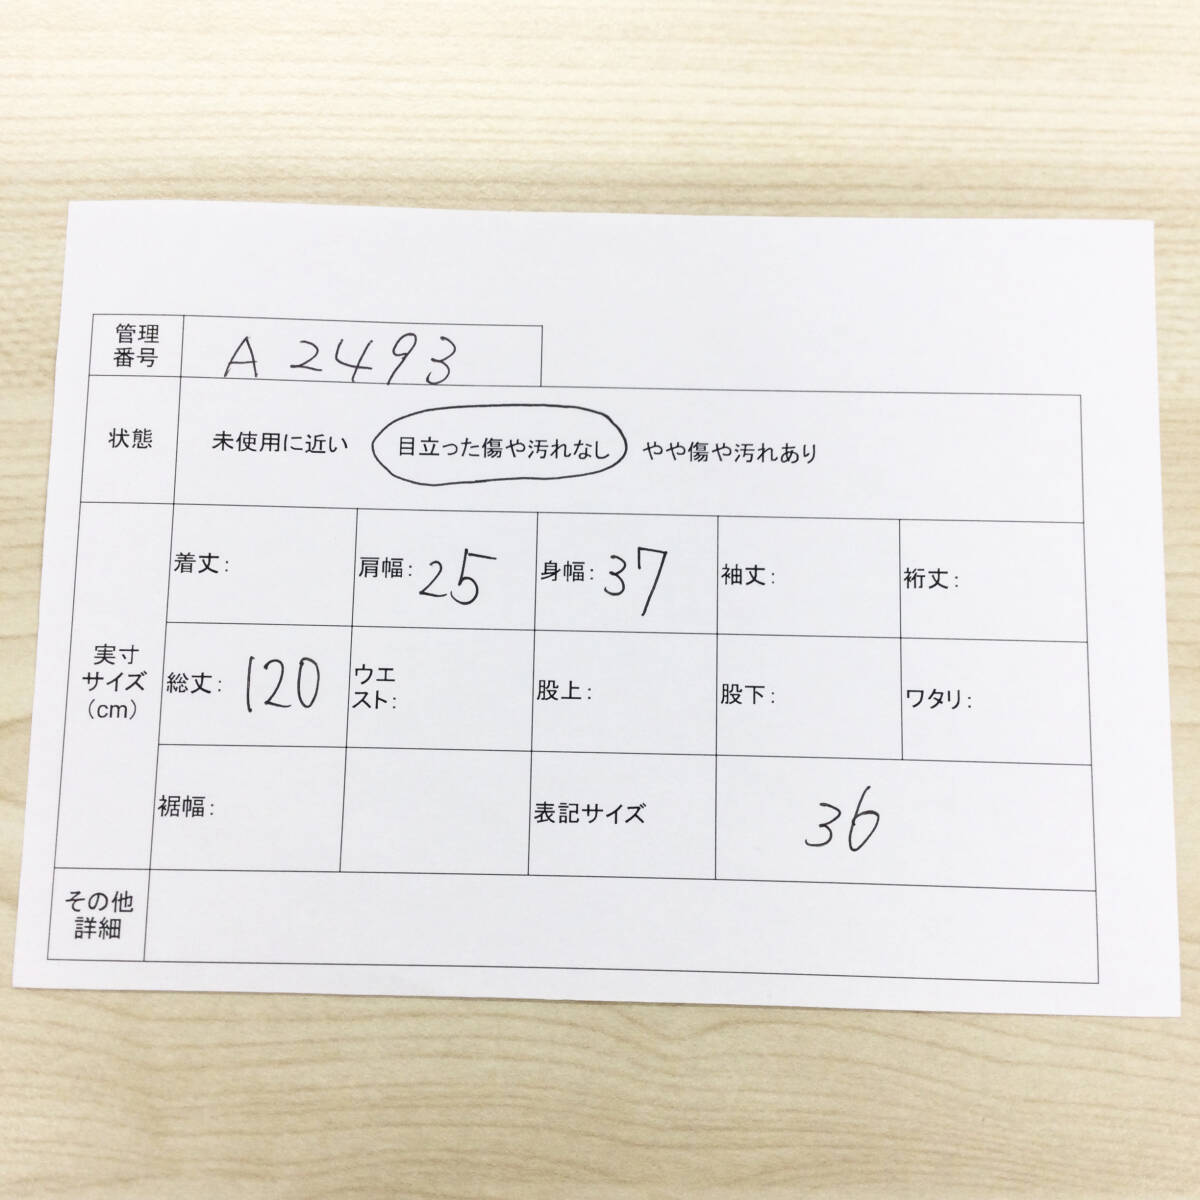 管理
番号
A2493
状態
未使用に近い 目立った傷や汚れなし やや傷や汚れあり
実寸
サイズ
(cm)
着丈:
肩幅: 25
身幅: 37
袖丈:
裄丈:
総丈: 120
ウエ
スト:
股上:
股下:
ワタリ:
裾幅:
表記サイズ
36
その他
詳細